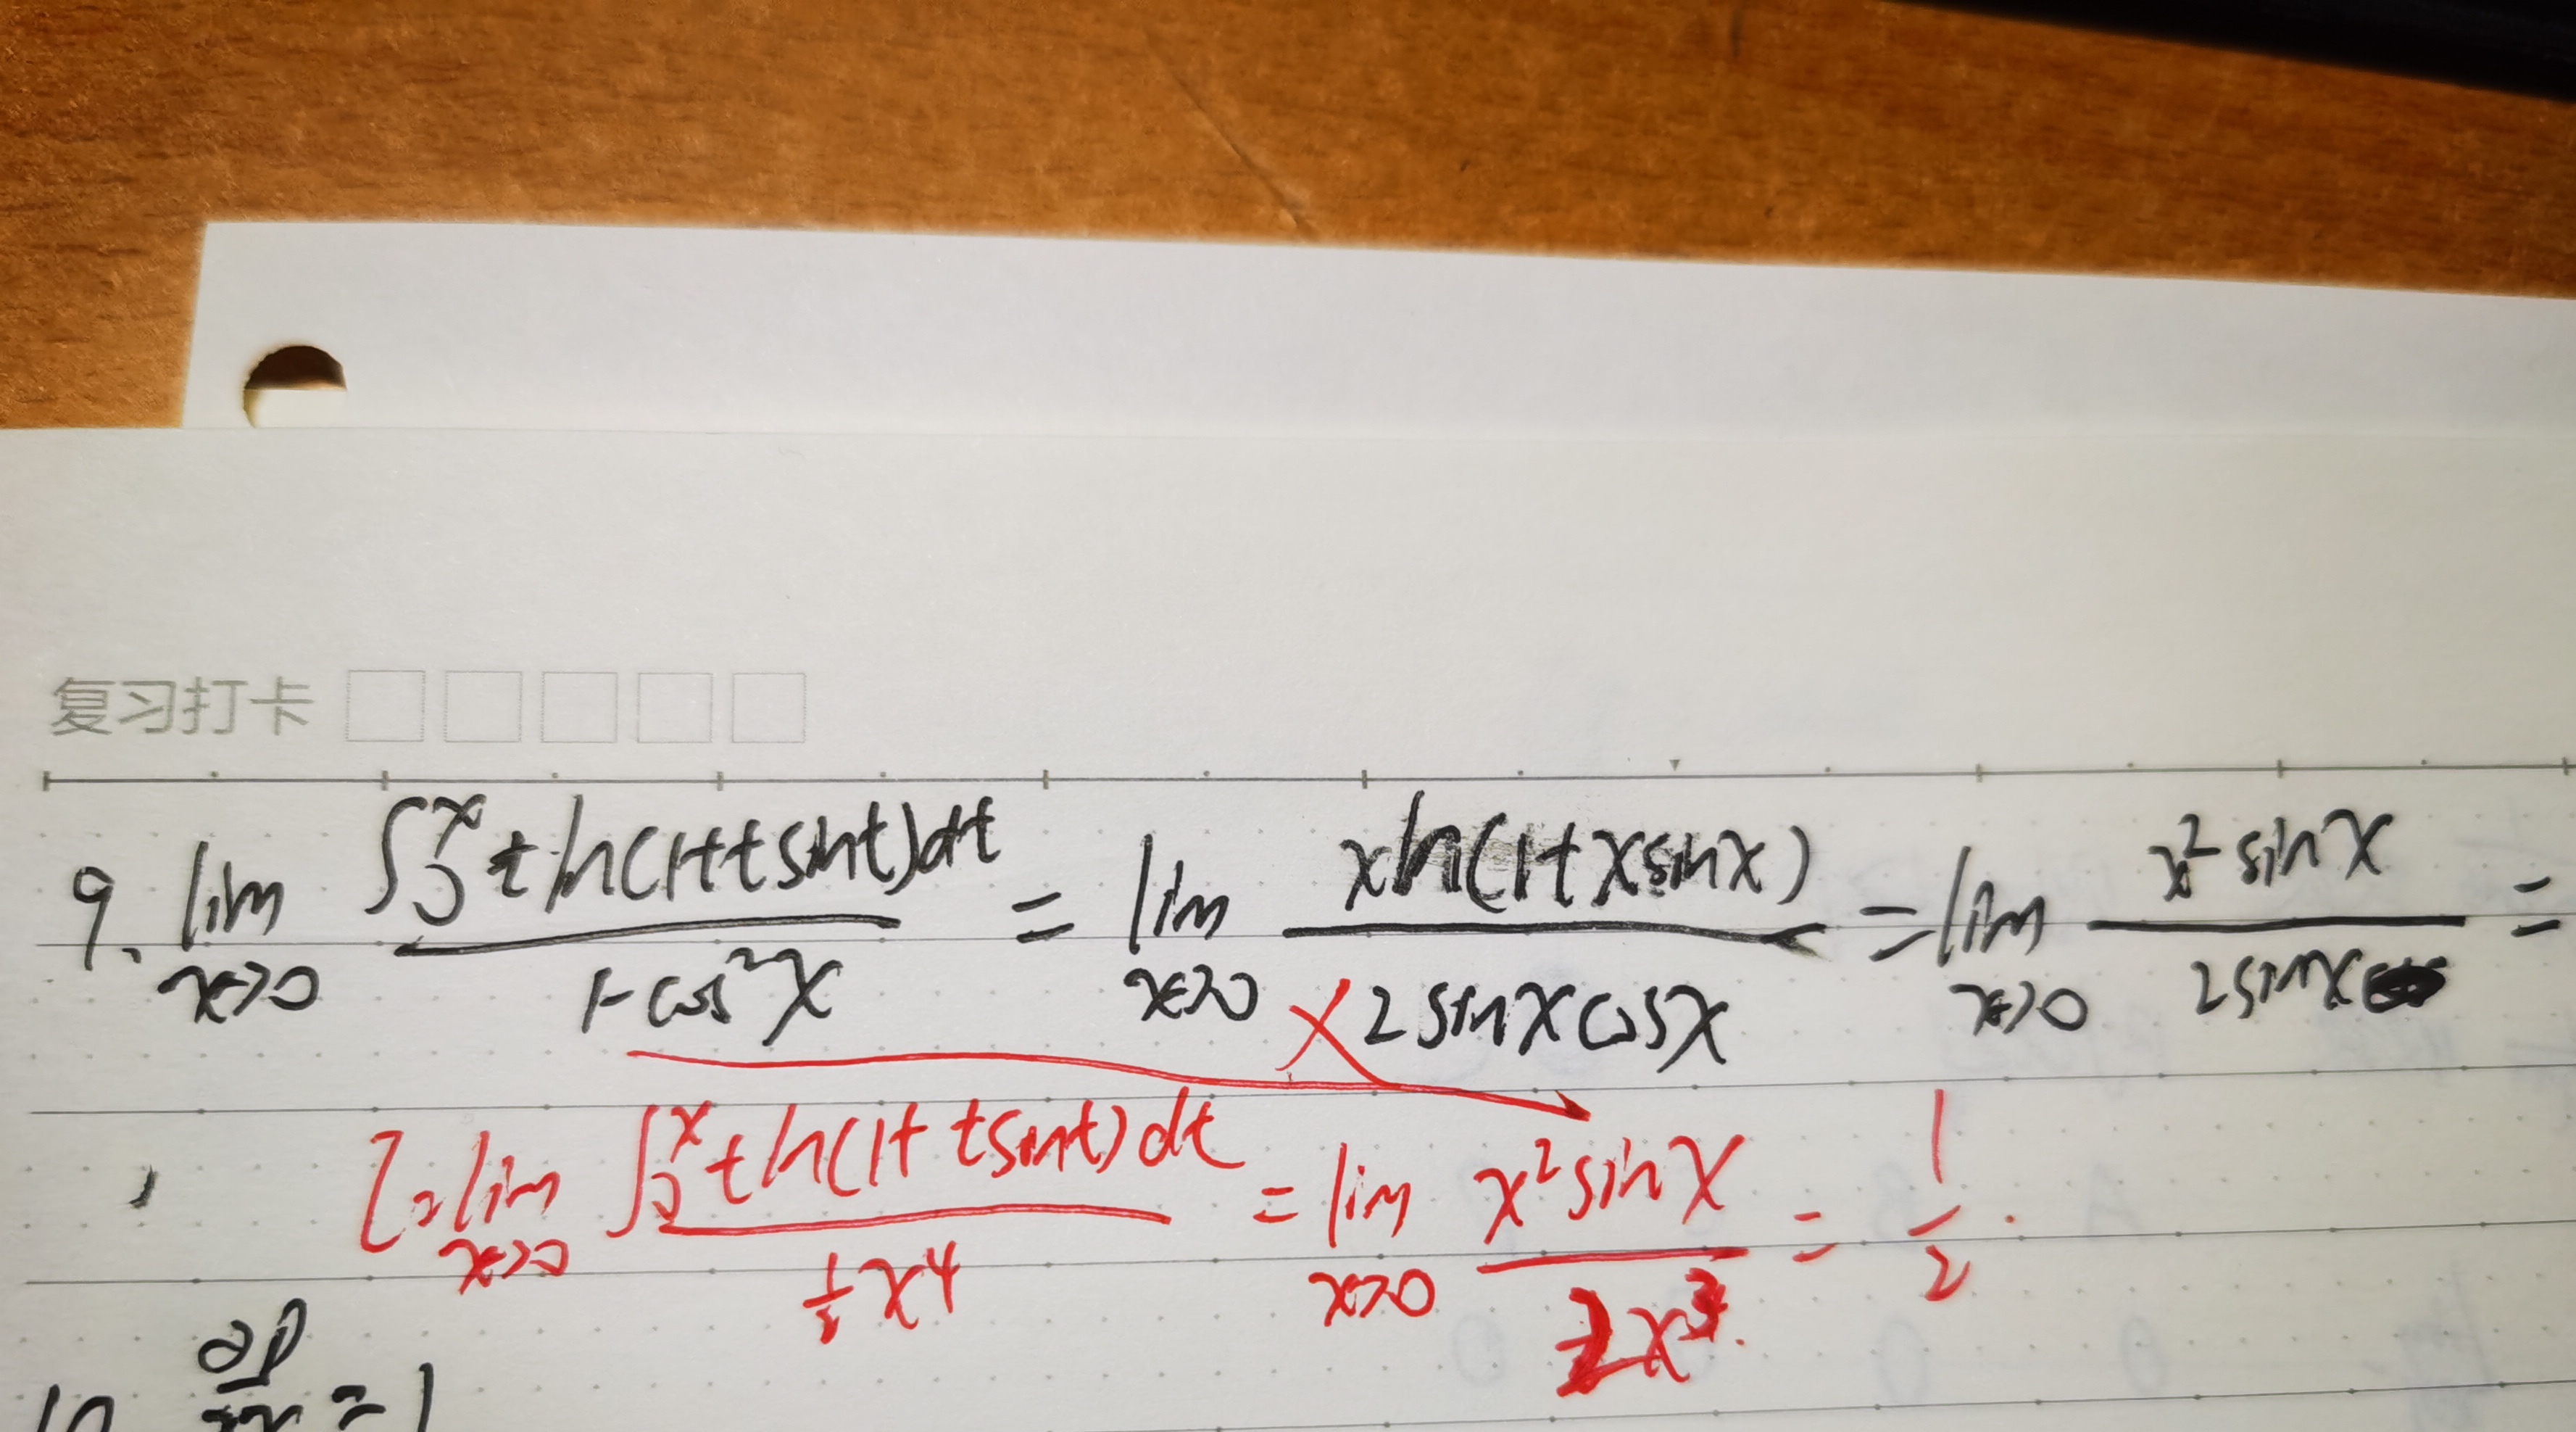 复习打卡
9. lim x→0 ∫₀ˣ t ln(1+t sint)dt / 1-cos²x = lim x→0 x ln(1+x sinx) / 2 sinx cosx = lim x→0 x² sinx / 2 sinx =
I = lim x→0 ∫₀ˣ t ln(1+t sint)dt / ½x⁴ = lim x→0 x² sinx / 2x³ = 1/2.